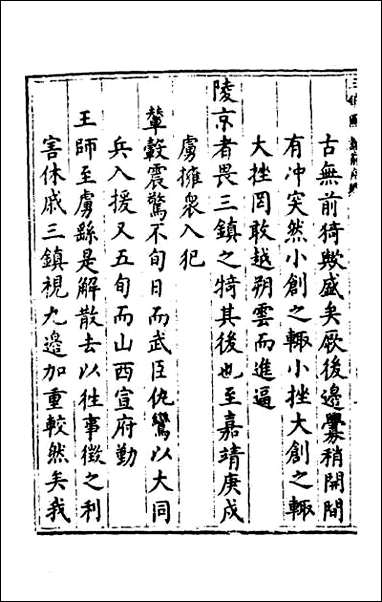 古無前猗歟盛矣厥後邊釁稍開間
有冲突然小創之輒小挫大創之輒
大挫罔敢越朔雲而進逼
陵京者畏三鎮之犄其後也至嘉靖庚戌
虜擁衆入犯
輦轂震驚不旬日而武臣仇鸞以大同
兵入援又五旬而山西宣府勤
王師至虜繇是解散去以往事徵之利
害休戚三鎮視九邊加重較然矣我